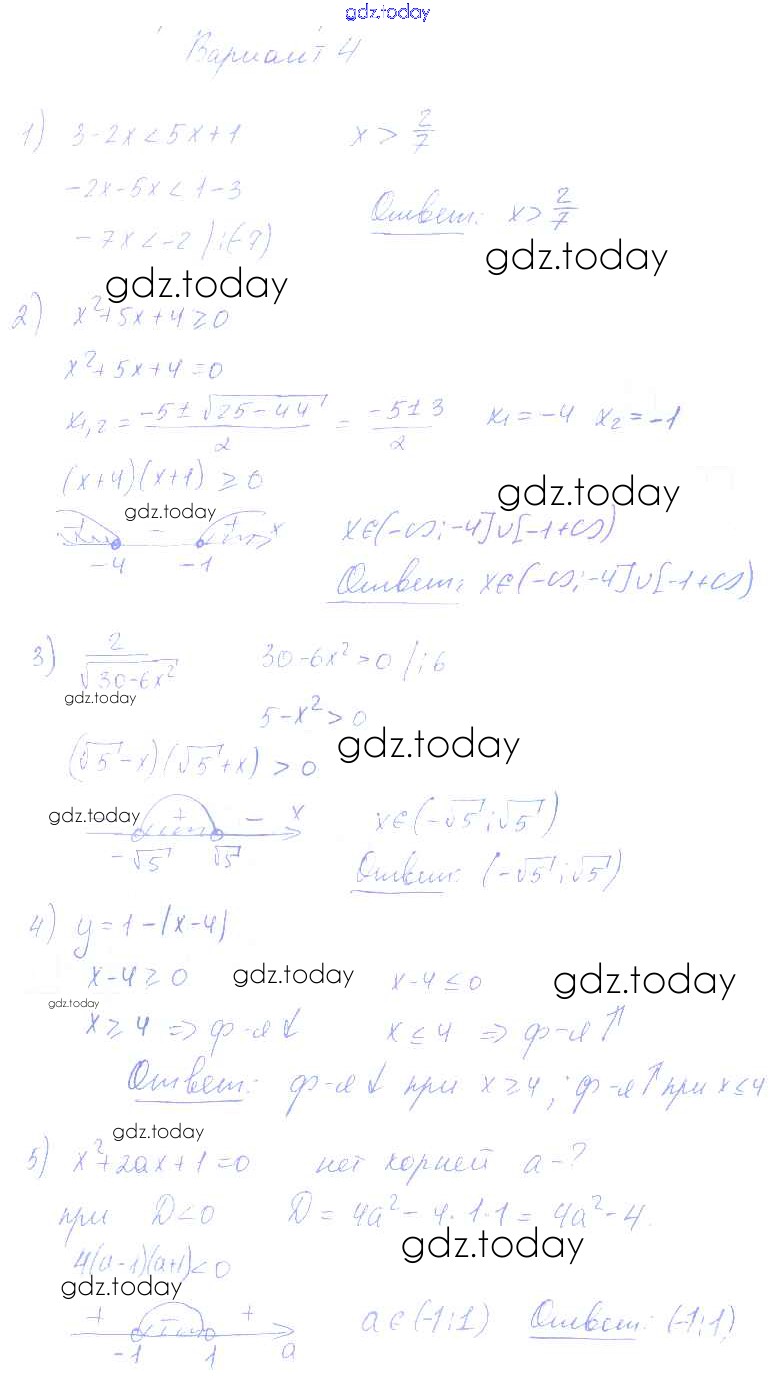 gdz.today
Вариант 4
1) 3-2x<5x+1 x > 2/7
-2x-5x<1-3
Ответ: x> 2/7
-7x<-2 |:(-7)
gdz.today
gdz.today
2) x²+5x+4≥0
x²+5x+4=0
x₁,₂ = (-5±√(25-4·4))/2 = (-5±3)/2 x₁=-4 x₂=-1
(x+4)(x+1) ≥0
gdz.today
gdz.today
+ - + x x∈(-∞;-4]∪[-1+∞)
-4 -1
Ответ: x∈(-∞;-4]∪[-1+∞)
3) 2/√(30-6x²) 30-6x²>0 |:6
gdz.today
5-x²>0
gdz.today
(√5-x)(√5+x) >0
gdz.today
+ - x x∈(-√5;√5)
-√5 √5
Ответ: (-√5;√5)
4) y=1-|x-4|
x-4≥0 gdz.today x-4≤0 gdz.today
gdz.today
x≥4 => ф-я↓ x≤4 => ф-я↑
Ответ: ф-я↓ при x≥4; ф-я↑ при x≤4
gdz.today
5) x²+2ax+1=0 нет корней a-?
при D<0 D=4a²-4·1·1=4a²-4.
gdz.today
4(a-1)(a+1)<0
gdz.today
+ - + a∈(-1;1) Ответ: (-1;1)
-1 1 a